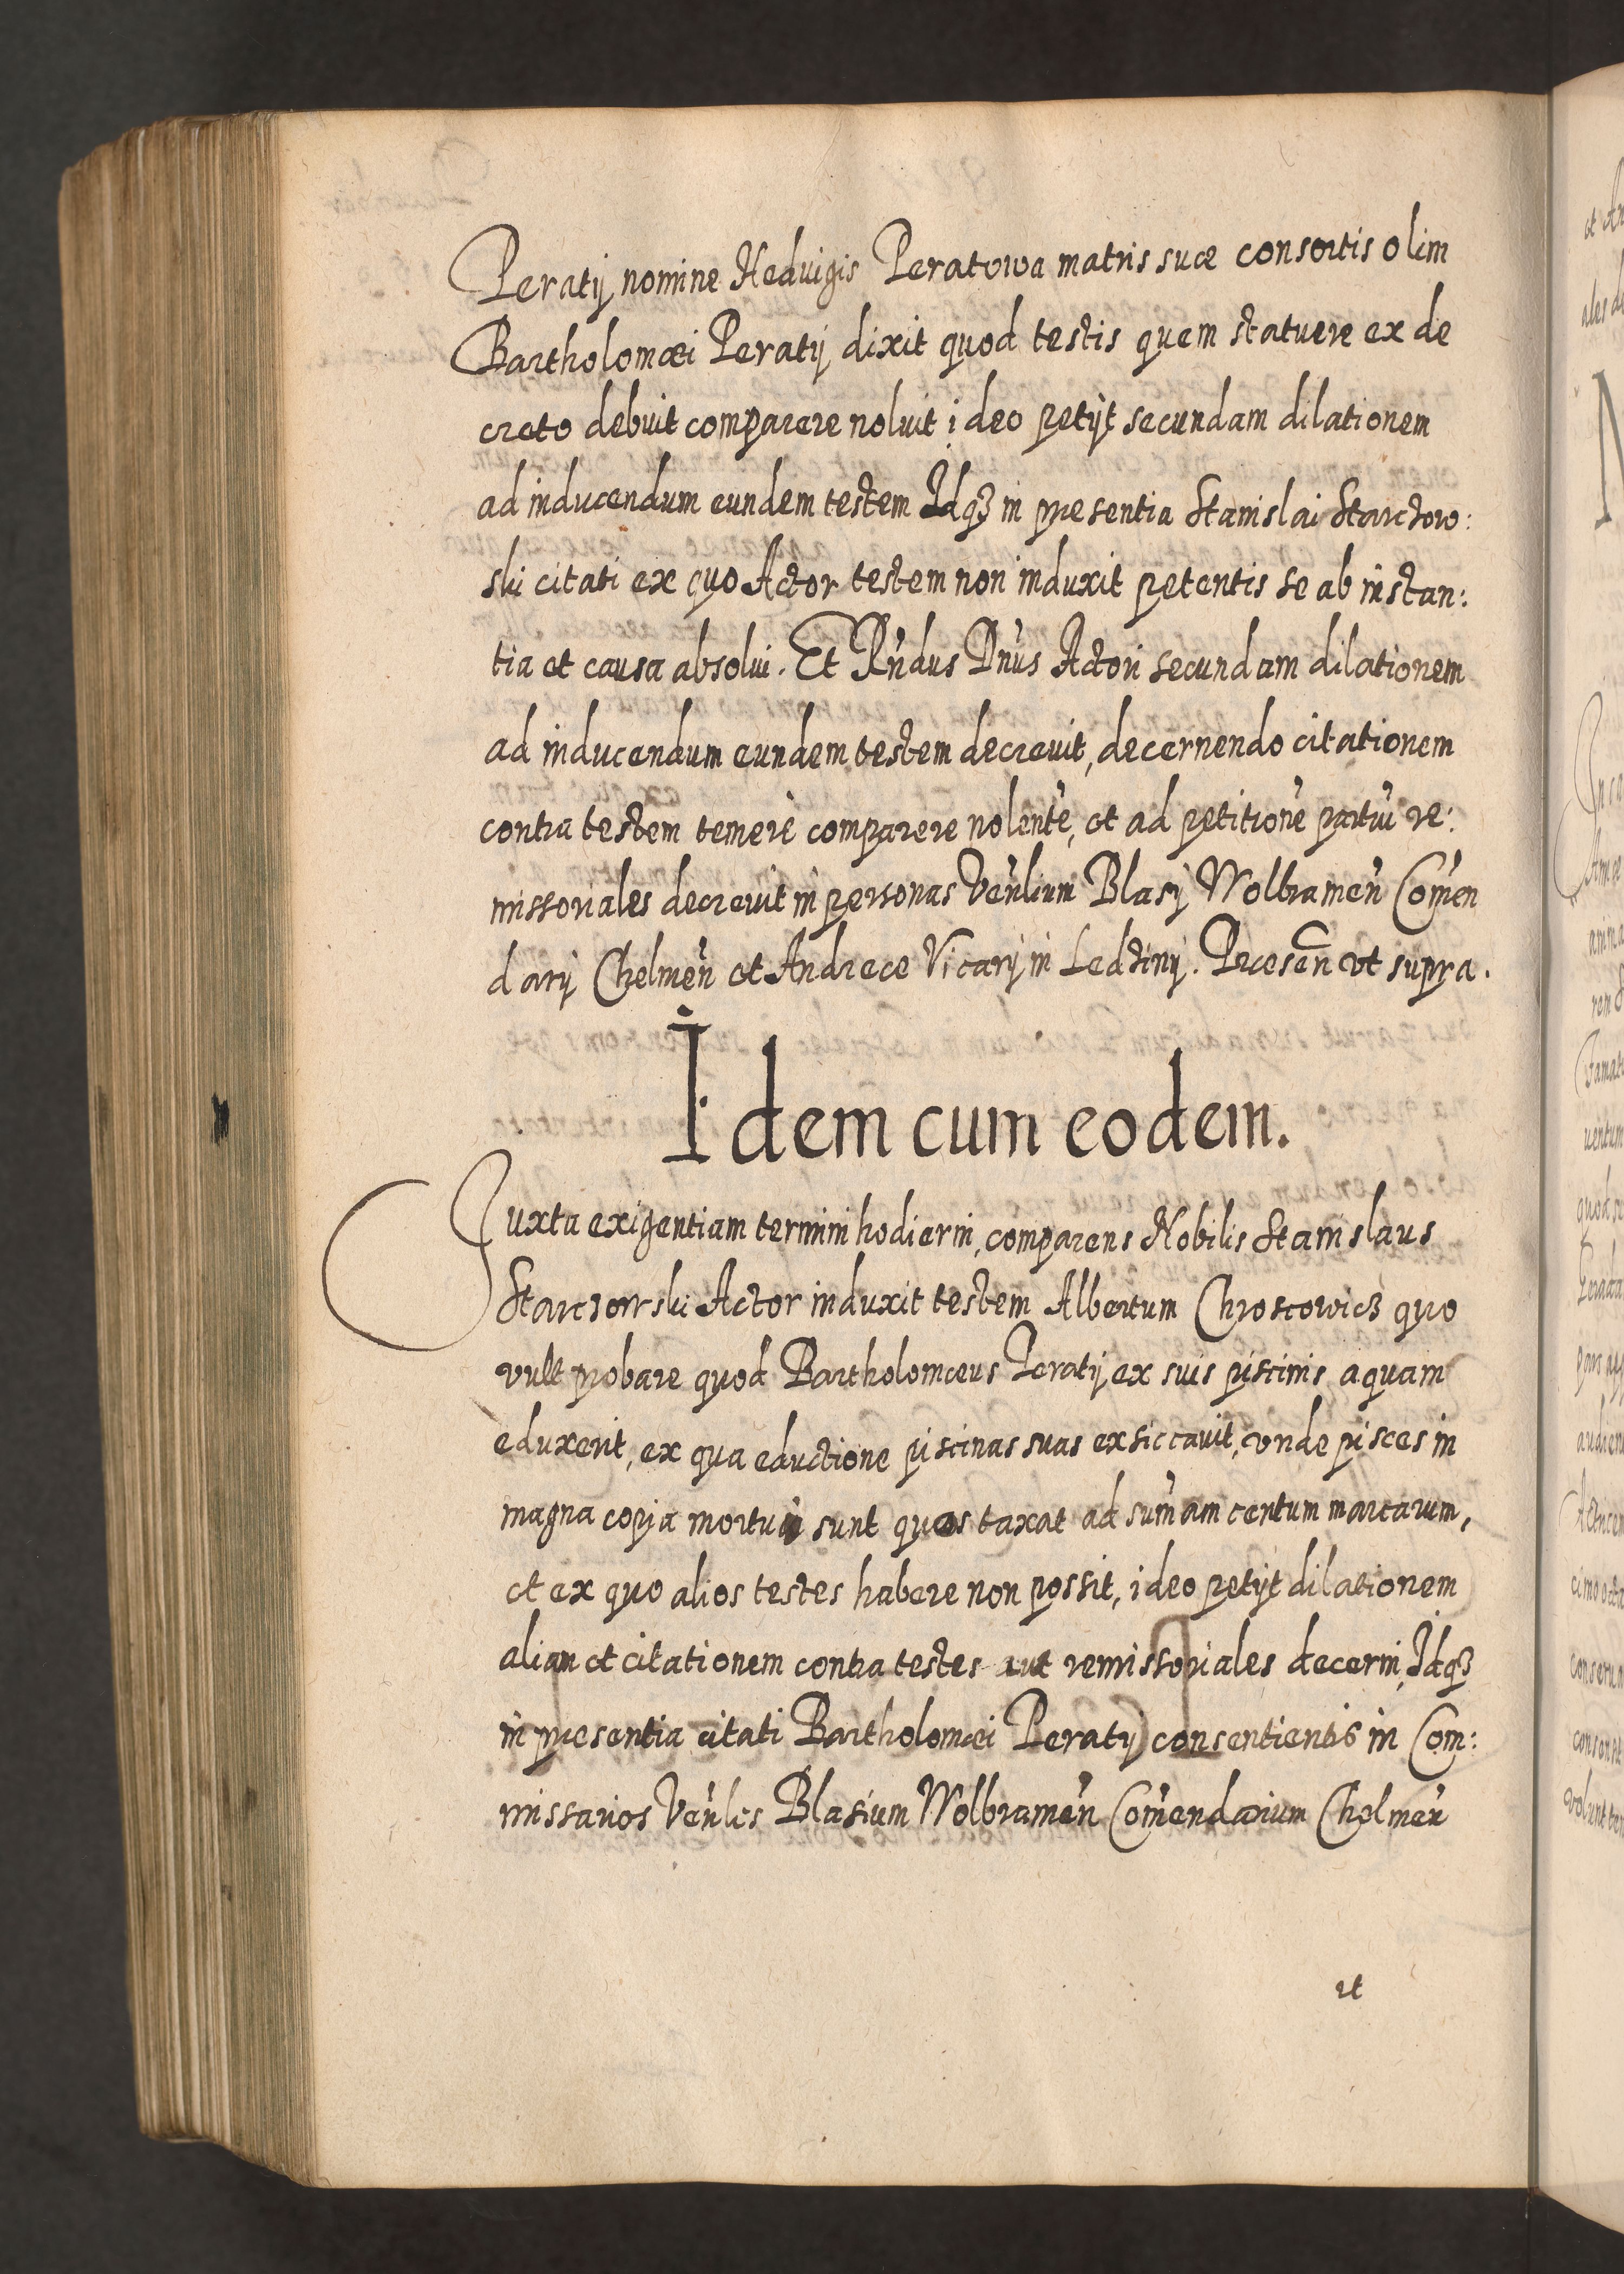 Peratÿ nomine Heduigis Peratowa matris suæ consortis olim
Bartholomæi Peratÿ dixit quod testis quem statuere ex de
creto debuit comparere noluit ideo petÿt secundam dilationem
ad inducendum eundem testem Idqꝫ in præsentia Stanislai Starczow:
ski citati ex quo Actor testem non induxit petentis se ab instan:
tia et causa absolui. Et Rn̄dus Dn̄us Actori secundam dilationem
ad inducendum eundem testem decreuit, decernendo citationem
contra testem temerè comparere nolentē, et ad petitionē partiū re:
missoriales decreuit in personas Ven̄lium Blasÿ Wolbramen̄ Com̄en
darÿ Chelmen̄ et Andreæ Vicarÿ in Lędzinÿ. Præsen̄ vt supra.
Idem cum eodem.
Juxta exigentiam termini hodierni, comparens Nobilis Stanislaus
Starczowski Actor induxit testem Albertum Chroscowicz quo
vult probare quod Bartholomæus Peratÿ ex suis piscinis aquam
eduxerit, ex qua eductione piscinas suas exsiccauit, vnde pisces in
magna copia mortui sunt quos taxat ad sum̄am centum marcarum,
et ex quo alios testes habere non possit, ideo petÿt dilationem
aliam et citationem contra testes aut remissoriales decerni, Idqꝫ
in præsentia citati Bartholomæi Peratÿ consentientis in Com:
missarios Ven̄les Blasium Wolbramen̄ Com̄endarium Chelmen̄
et